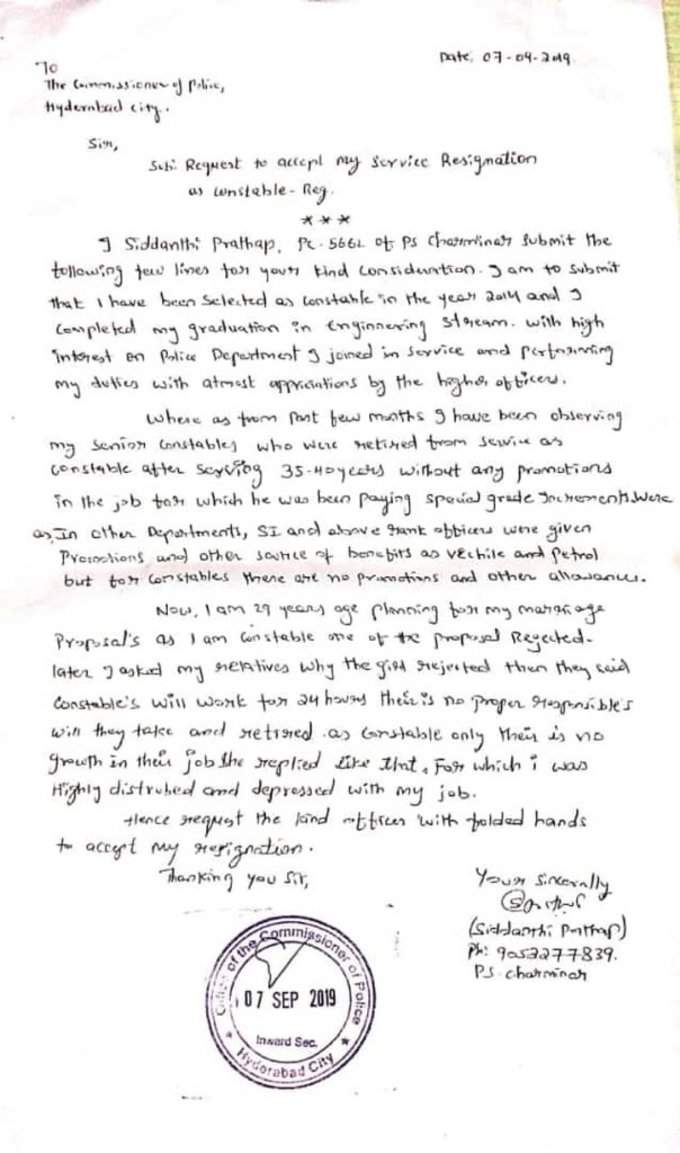 Date: 07-09-2019
To
The Commissioner of Police,
Hyderabad City.
Sir,
Sub: Request to accept my Service Resignation
as Constable - Reg.
***
I Siddanthi Prathap, PC. 5662 of PS Charminar submit the
following few lines for your kind consideration. I am to submit
that I have been Selected as Constable in the year 2014 and I
completed my graduation in Enginnering Stream. With high
interest on Police Department I joined in Service and performing
my duties with atmost appriciations by the higher officers.
Where as from Past few months I have been observing
my Senior Constables who were retired from Service as
Constable after Serving 35-40 years without any promotions
in the job for which he was been paying special grade Increments. Were
as, In other Departments, SI and above rank officers were given
Promotions and other source of benefits as vechile and Petrol
but for Constables there are no promotions and other allowances.
Now, I am 29 years age planning for my marriage
Proposal's as I am Constable one of the proposal Rejected.
later I asked my relatives why the girl rejected then they said
Constable's will work for 24 hours their is no proper responsible's
will they take and retired as Constable only their is no
growth in their job She replied like that, For which i was
Highly distrubed and depressed with my job.
Hence request the kind officer with folded hands
to accept my resignation.
Thanking you Sir,
Your Sincerally
(Siddanthi Prathap)
Ph: 9053277839.
PS Charminar
Office of the Commissioner of Police
07 SEP 2019
Inward Sec.
Hyderabad City